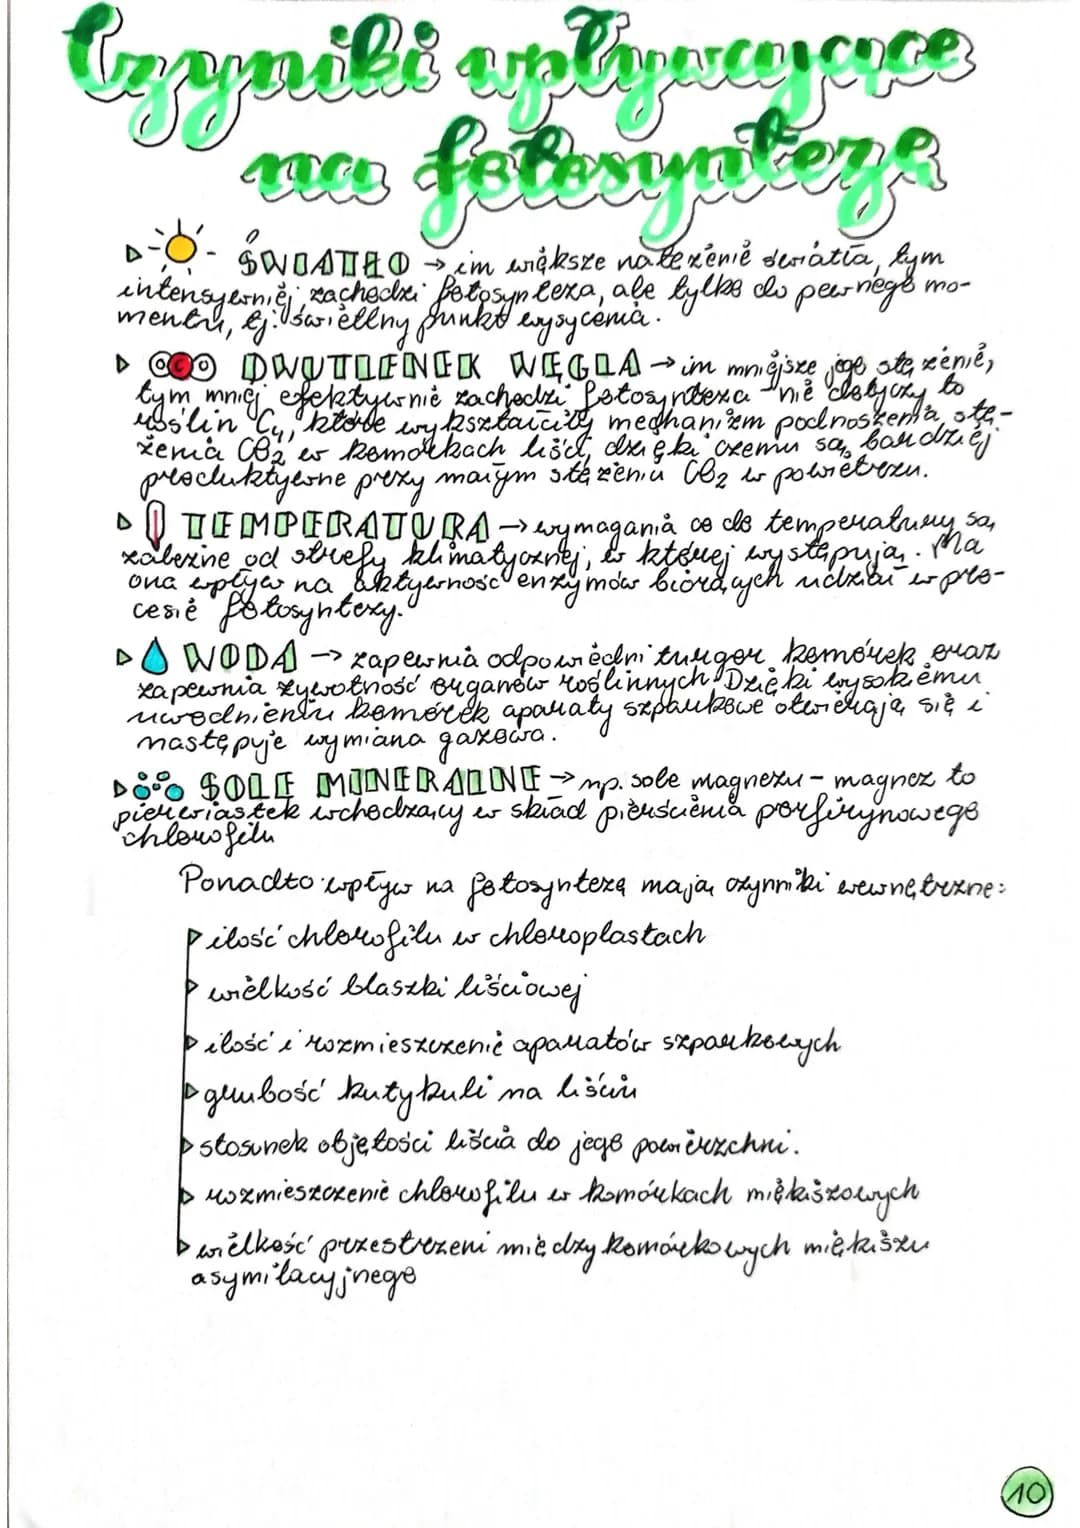 Czynniki wpływające
na fotosyntezę
ŚWIATŁO → im większe natężenie światła, tym
intensywniej zachodzi fotosynteza, ale tylko do pewnego mo-
mentu, tj. świetlny punkt wysycenia.
DWUTLENEK WĘGLA → im mniejsze jego stężenie,
tym mniej efektywnie zachodzi fotosynteza - nie dotyczy to
roślin C4, które wykształciły mechanizm podnoszenia stę-
żenia CO2 w komórkach liści, dzięki czemu są bardziej
produktywne przy małym stężeniu CO2 w powietrzu.
TEMPERATURA → wymagania co do temperatury są
zależne od strefy klimatycznej, w której występują. Ma
ona wpływ na aktywność enzymów biorących udział w pro-
cesie fotosyntezy.
WODA → zapewnia odpowiedni turgor komórek oraz
zapewnia żywotność organów roślinnych. Dzięki wysokiemu
uwodnieniu komórek aparaty szparkowe otwierają się i
następuje wymiana gazowa.
SOLE MINERALNE → np. sole magnezu - magnez to
pierwiastek wchodzący w skład pierścienia porfirynowego
chlorofilu
Ponadto wpływ na fotosyntezę mają czynniki wewnętrzne:
ilość chlorofilu w chloroplastach
wielkość blaszki liściowej
ilość i rozmieszczenie aparatów szparkowych
grubość kutykuli na liściu
stosunek objętości liścia do jego powierzchni.
rozmieszczenie chlorofilu w komórkach miękiszowych
wielkość przestrzeni międzykomórkowych miękiszu
asymilacyjnego
10